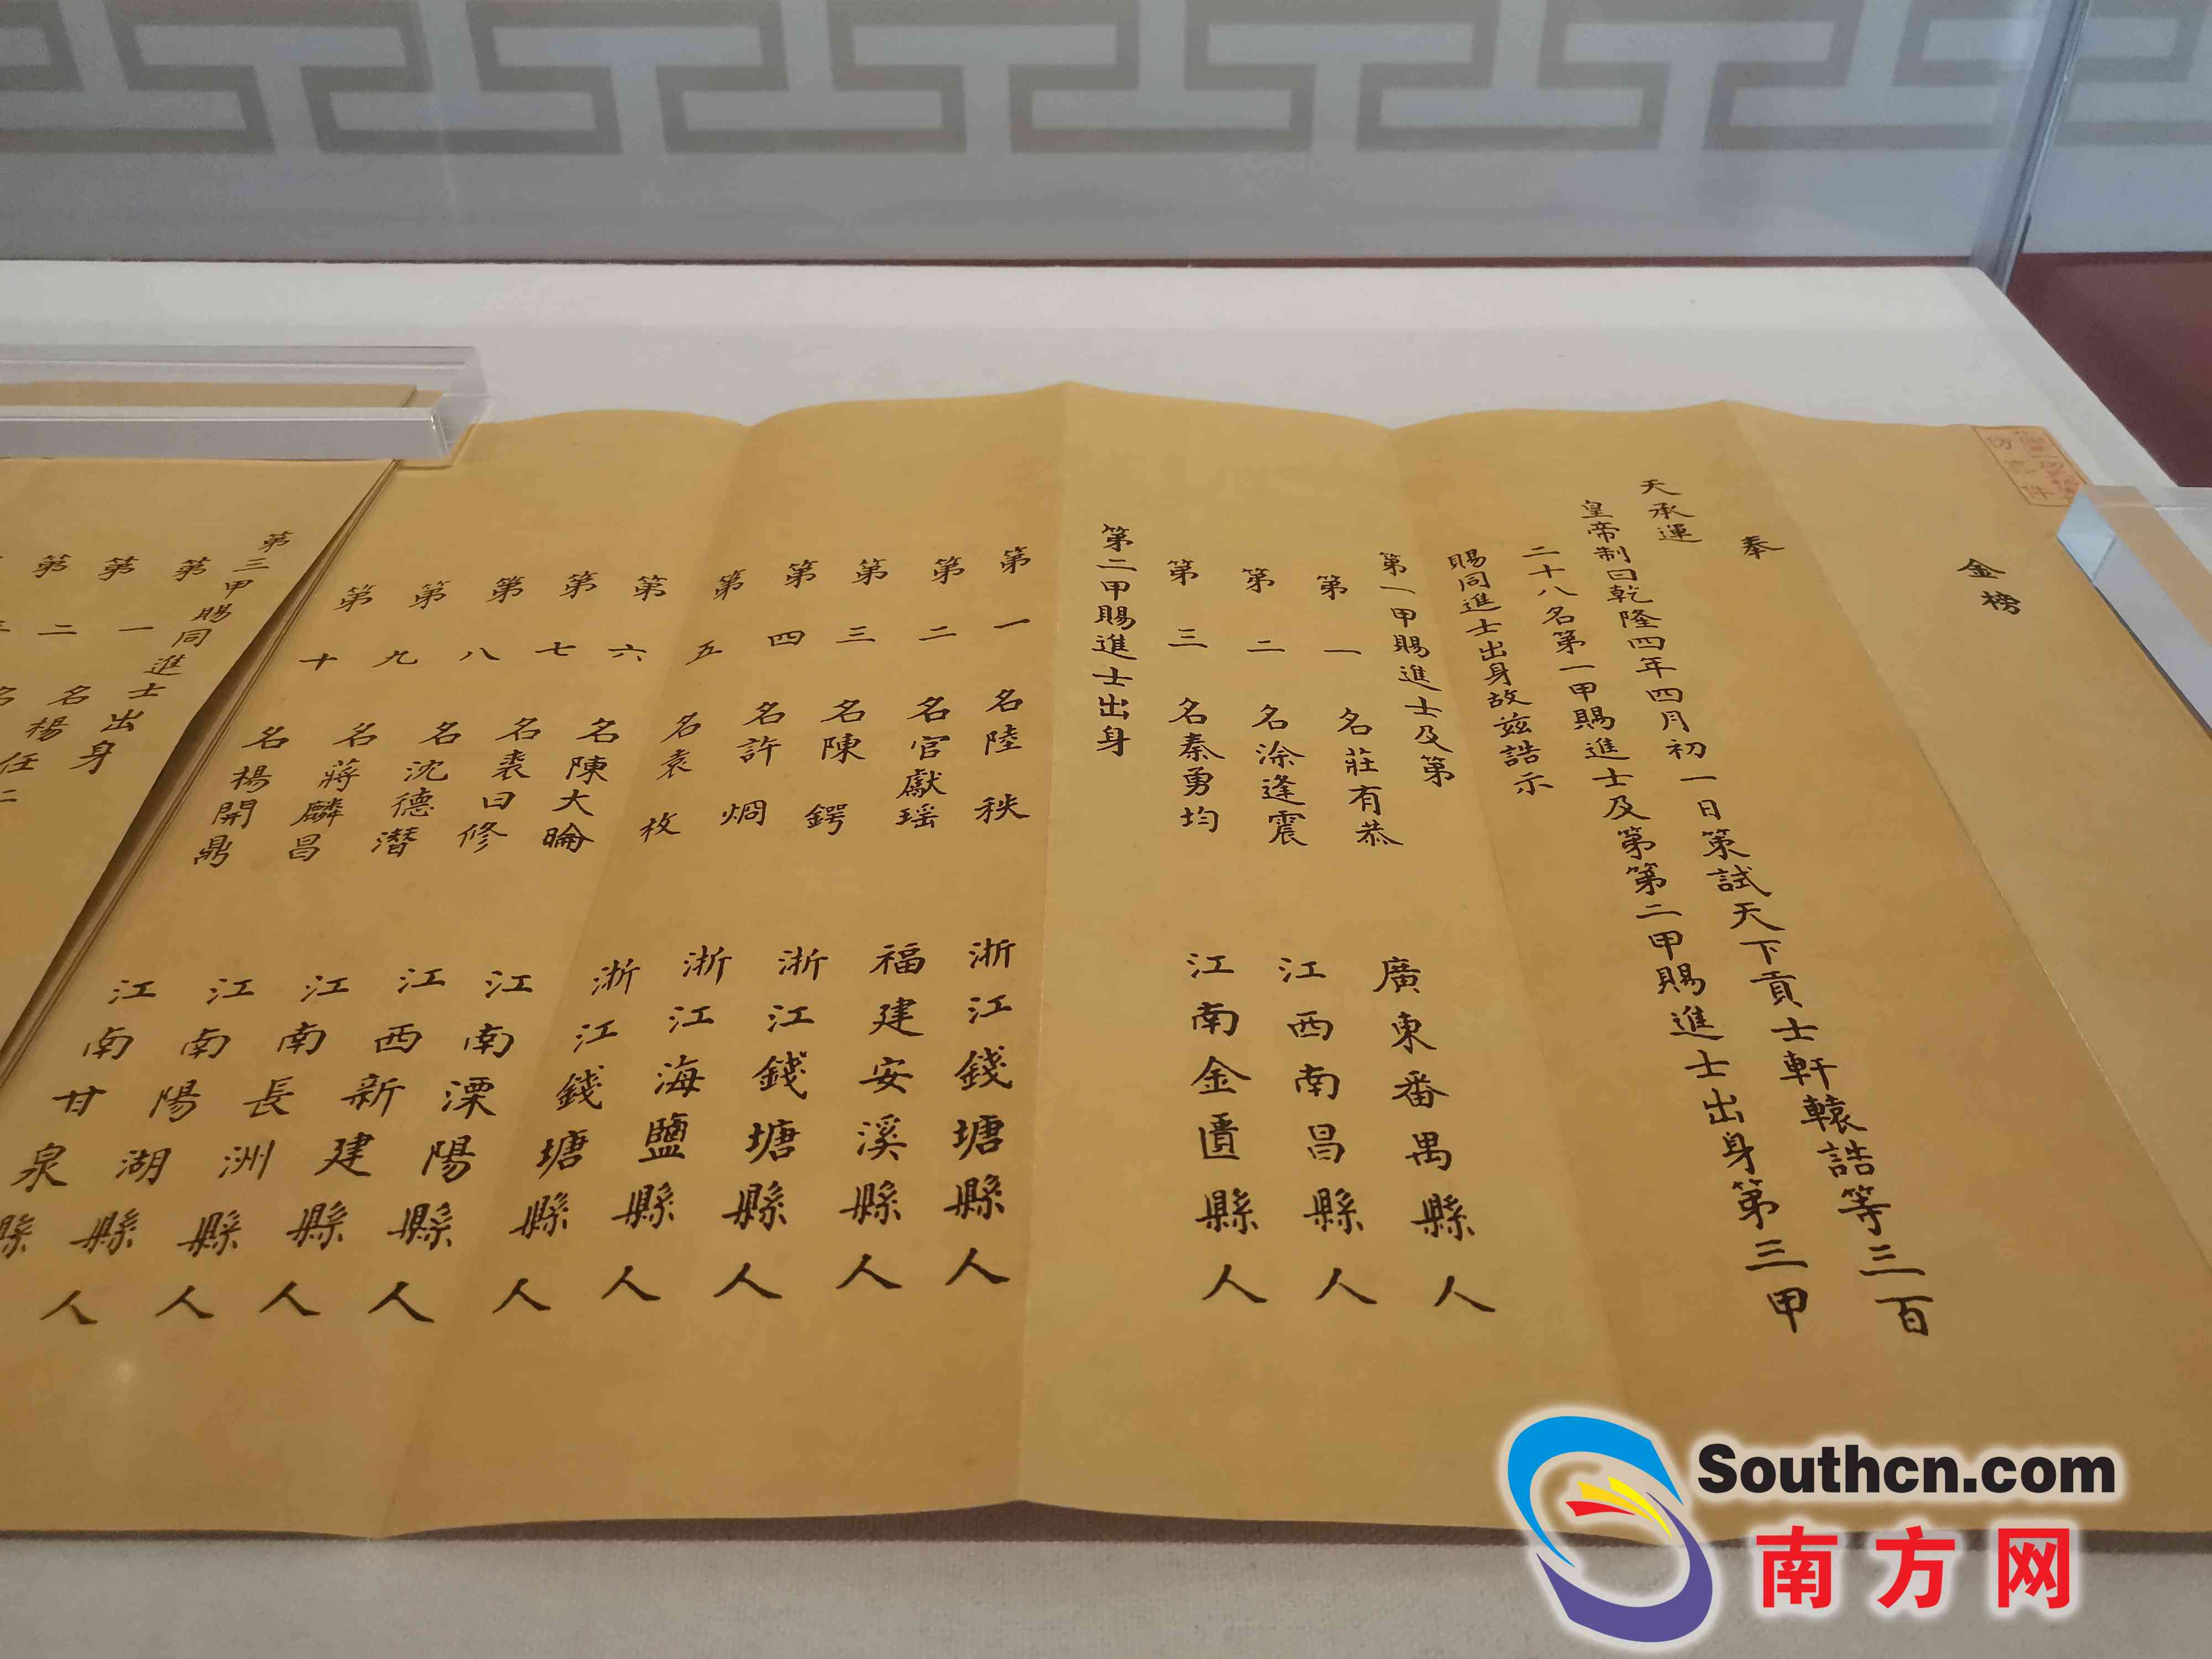 金榜
奉
天承運
皇帝制曰乾隆四年四月初一日策試天下貢士軒轅誥等三百
二十八名第一甲賜進士及第第二甲賜進士出身第三甲
賜同進士出身故茲誥示
第一甲賜進士及第
第一名莊有恭 廣東番禺縣人
第二名涂逢震 江西南昌縣人
第三名秦勇均 江南金匱縣人
第二甲賜進士出身
第一名陸秩 浙江錢塘縣人
第二名官獻瑶 福建安溪縣人
第三名陳鍔 浙江錢塘縣人
第四名許焵 浙江海鹽縣人
第五名袁枚 浙江錢塘縣人
第六名陳大㬓 江南溧陽縣人
第七名裘曰修 江西新建縣人
第八名沈德潛 江南長洲縣人
第九名蔣麟昌 江南陽湖縣人
第十名楊開鼎 江南甘泉縣人
第三甲賜同進士出身
第一名楊任仁
第二名
Southcn.com
南方网